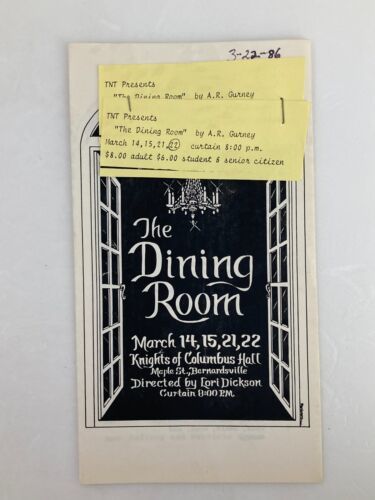 3-22-86
TNT Presents
"The Dining Room" by A.R. Gurney
TNT Presents
"The Dining Room" by A.R. Gurney
March 14,15,21,22 curtain 8:00 p.m.
$8.00 adult $6.00 student & senior citizen
The
Dining
Room
March 14,15,21,22
Knights of Columbus Hall
Maple St., Bernardsville
Directed by Lori Dickson
Curtain 8:00 P.M.